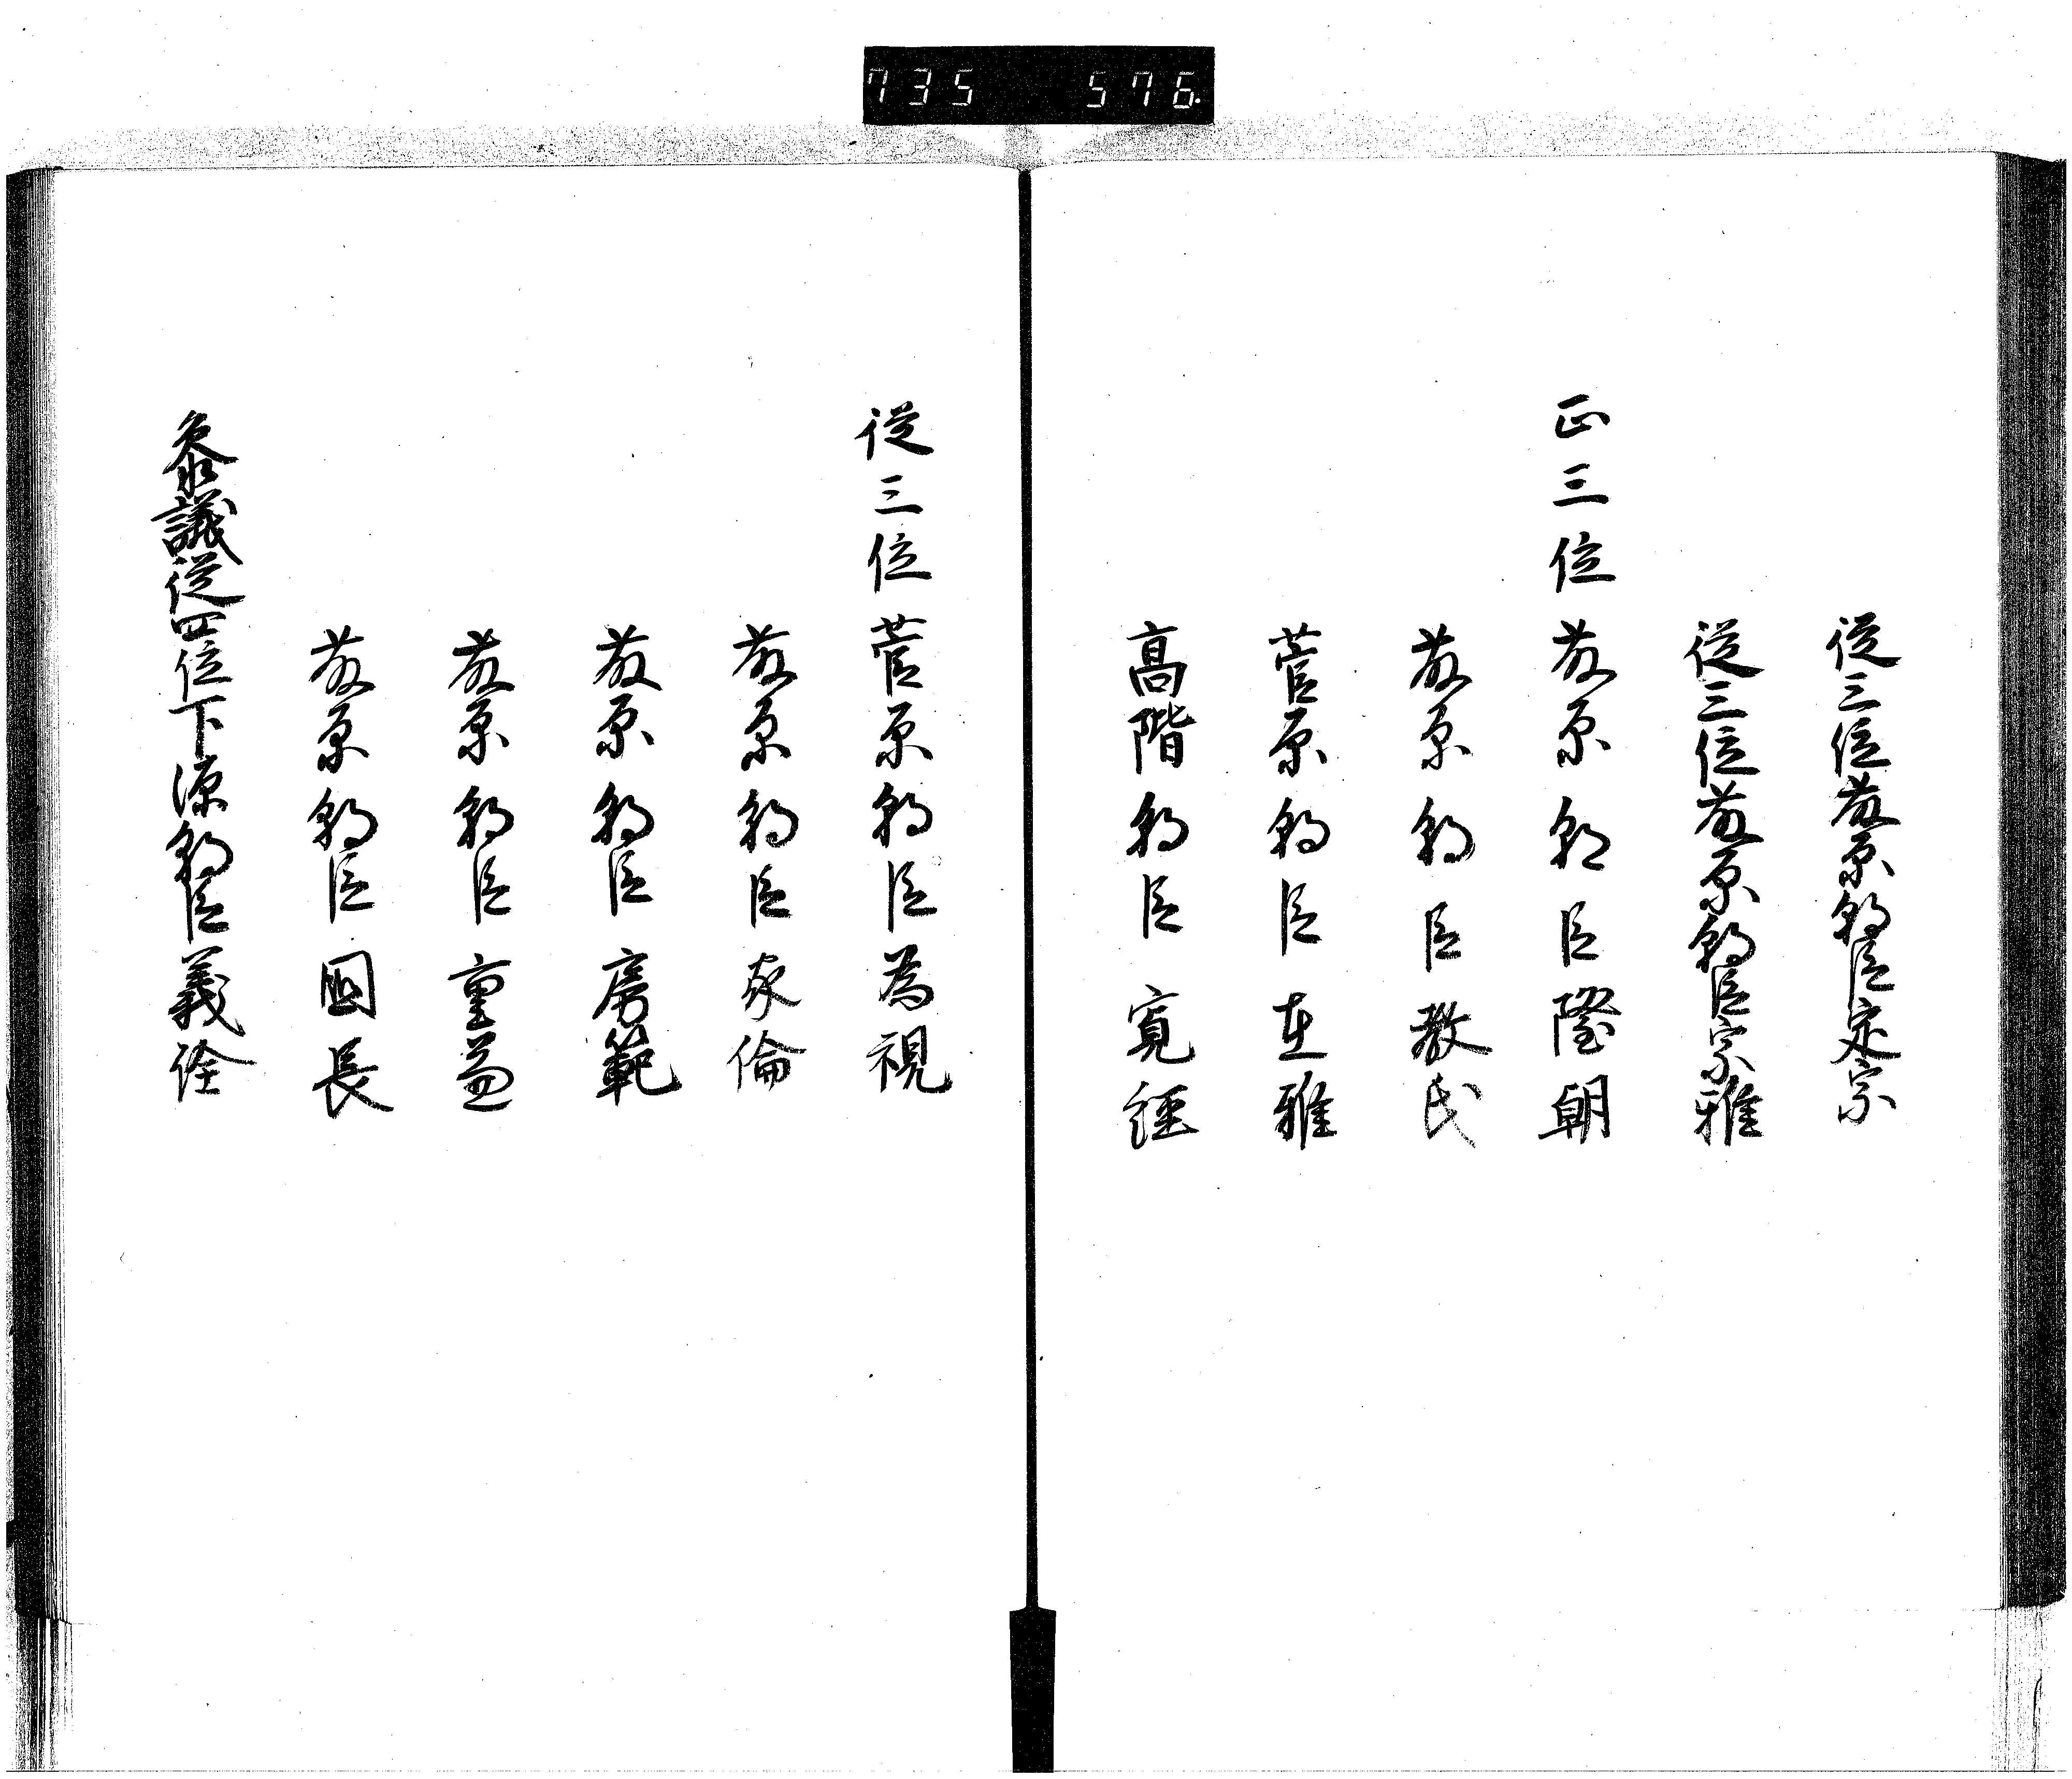 735 576
従三位藤原朝臣定宗
従三位藤原朝臣宗雅
正三位藤原朝臣隆朝
藤原朝臣教氏
菅原朝臣在雅
高階朝臣寛経
従三位菅原朝臣為視
藤原朝臣家倫
藤原朝臣房範
藤原朝臣重兼
藤原朝臣國長
参議従四位下源朝臣義詮